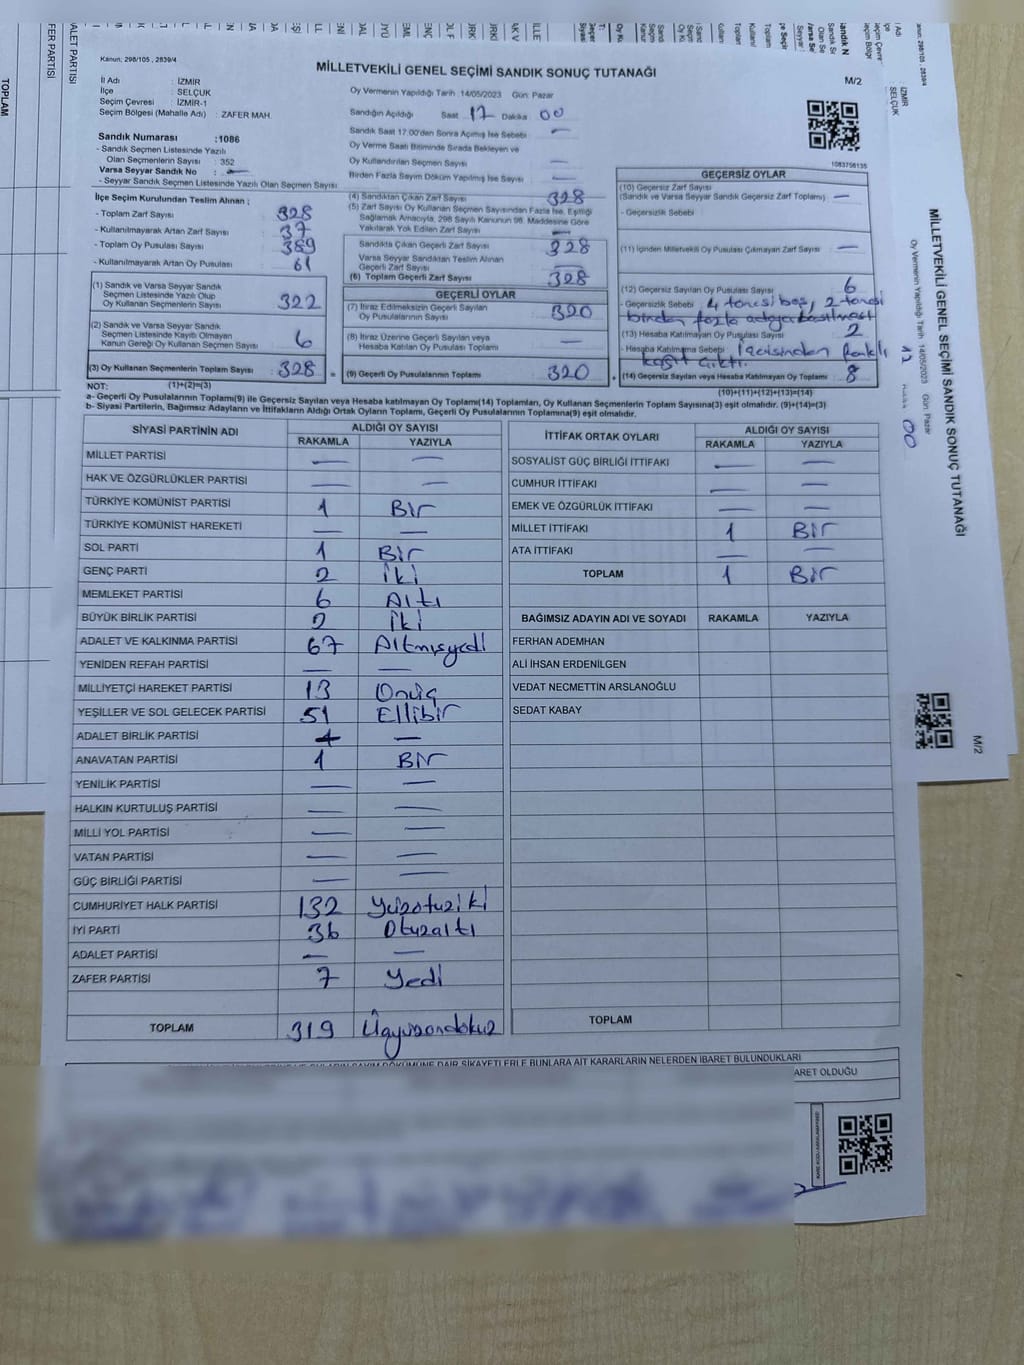 Kanun; 298/105 , 2839/4
MİLLETVEKİLİ GENEL SEÇİMİ SANDIK SONUÇ TUTANAĞI
M/2
İl Adı : İZMİR
İlçe : SELÇUK
Seçim Çevresi : İZMİR-1
Seçim Bölgesi (Mahalle Adı) : ZAFER MAH.
Sandık Numarası :1086
- Sandık Seçmen Listesinde Yazılı
Olan Seçmenlerin Sayısı : 352
Varsa Seyyar Sandık No : —
- Seyyar Sandık Seçmen Listesinde Yazılı Olan Seçmen Sayısı
Oy Vermenin Yapıldığı Tarih :14/05/2023 Gün: Pazar
Sandığın Açıldığı Saat 17 Dakika 00
Sandık Saat 17:00'den Sonra Açılmış İse Sebebi —
Oy Verme Saati Bitiminde Sırada Bekleyen ve
Oy Kullandırılan Seçmen Sayısı —
Birden Fazla Sayım Döküm Yapılmış İse Sayısı —
1083756135
İlçe Seçim Kurulundan Teslim Alınan ;
- Toplam Zarf Sayısı 328
- Kullanılmayarak Artan Zarf Sayısı 37
- Toplam Oy Pusulası Sayısı 389
- Kullanılmayarak Artan Oy Pusulası 61
(1) Sandık ve Varsa Seyyar Sandık
Seçmen Listesinde Yazılı Olup
Oy Kullanan Seçmenlerin Sayısı 322
(2) Sandık ve Varsa Seyyar Sandık
Seçmen Listesinde Kayıtlı Olmayan
Kanun Gereği Oy Kullanan Seçmen Sayısı 6
(3) Oy Kullanan Seçmenlerin Toplam Sayısı 328
(1)+(2)=(3)
(4) Sandıktan Çıkan Zarf Sayısı 328
(5) Zarf Sayısı Oy Kullanan Seçmen Sayısından Fazla İse, Eşitliği
Sağlamak Amacıyla, 298 Sayılı Kanunun 98. Maddesine Göre
Yakılarak Yok Edilen Zarf Sayısı —
Sandıkta Çıkan Geçerli Zarf Sayısı 328
Varsa Seyyar Sandıktan Teslim Alınan
Geçerli Zarf Sayısı —
(6) Toplam Geçerli Zarf Sayısı 328
GEÇERLİ OYLAR
(7) İtiraz Edilmeksizin Geçerli Sayılan
Oy Pusulalarının Sayısı 320
(8) İtiraz Üzerine Geçerli Sayılan veya
Hesaba Katılan Oy Pusulaları Toplamı —
(9) Geçerli Oy Pusulalarının Toplamı 320
GEÇERSİZ OYLAR
(10) Geçersiz Zarf Sayısı
(Sandık ve Varsa Seyyar Sandık Geçersiz Zarf Toplamı) —
- Geçersizlik Sebebi
(11) İçinden Milletvekili Oy Pusulası Çıkmayan Zarf Sayısı —
(12) Geçersiz Sayılan Oy Pusulası Sayısı 6
- Geçersizlik Sebebi 4 tanesi boş, 2 tanesi
birden fazla adaya basılması
(13) Hesaba Katılmayan Oy Pusulası Sayısı 2
- Hesaba Katılmama Sebebi İçerisinden farklı
kağıt çıktı.
(14) Geçersiz Sayılan veya Hesaba Katılmayan Oy Toplamı 8
(10)+(11)+(12)+(13)=(14)
NOT:
a- Geçerli Oy Pusulalarının Toplamı(9) ile Geçersiz Sayılan veya Hesaba katılmayan Oy Toplamı(14) Toplamları, Oy Kullanan Seçmenlerin Toplam Sayısına(3) eşit olmalıdır. (9)+(14)=(3)
b- Siyasi Partilerin, Bağımsız Adayların ve İttifakların Aldığı Ortak Oyların Toplamı, Geçerli Oy Pusulalarının Toplamına(9) eşit olmalıdır.
SİYASİ PARTİNİN ADI ALDIĞI OY SAYISI
RAKAMLA YAZIYLA
MİLLET PARTİSİ — —
HAK VE ÖZGÜRLÜKLER PARTİSİ — —
TÜRKİYE KOMÜNİST PARTİSİ 1 Bir
TÜRKİYE KOMÜNİST HAREKETİ — —
SOL PARTİ 1 Bir
GENÇ PARTİ 2 İki
MEMLEKET PARTİSİ 6 Altı
BÜYÜK BİRLİK PARTİSİ 2 İki
ADALET VE KALKINMA PARTİSİ 67 Altmışyedi
YENİDEN REFAH PARTİSİ — —
MİLLİYETÇİ HAREKET PARTİSİ 13 Onüç
YEŞİLLER VE SOL GELECEK PARTİSİ 51 Ellibir
ADALET BİRLİK PARTİSİ —
ANAVATAN PARTİSİ 1 Bir
YENİLİK PARTİSİ — —
HALKIN KURTULUŞ PARTİSİ — —
MİLLİ YOL PARTİSİ — —
VATAN PARTİSİ — —
GÜÇ BİRLİĞİ PARTİSİ — —
CUMHURİYET HALK PARTİSİ 132 Yüzotuziki
İYİ PARTİ 36 Otuzaltı
ADALET PARTİSİ — —
ZAFER PARTİSİ 7 Yedi
TOPLAM 319 Üçyüzondokuz
İTTİFAK ORTAK OYLARI ALDIĞI OY SAYISI
RAKAMLA YAZIYLA
SOSYALİST GÜÇ BİRLİĞİ İTTİFAKI — —
CUMHUR İTTİFAKI — —
EMEK VE ÖZGÜRLÜK İTTİFAKI — —
MİLLET İTTİFAKI 1 Bir
ATA İTTİFAKI — —
TOPLAM 1 Bir
BAĞIMSIZ ADAYIN ADI VE SOYADI RAKAMLA YAZIYLA
FERHAN ADEMHAN
ALİ İHSAN ERDENİLGEN
VEDAT NECMETTİN ARSLANOĞLU
SEDAT KABAY
TOPLAM
DÖKÜMÜNE DAİR ŞİKAYETLERLE BUNLARA AİT KARARLARIN NELERDEN İBARET BULUNDUKLARI
ARET OLDUĞU
MİLLETVEKİLİ GENEL SEÇİMİ SANDIK SONUÇ TUTANAĞI
Oy Vermenin Yapıldığı Tarih :14/05/2023 Gün: Pazar
00
M/2
İZMİR
SELÇUK
TOPLAM
FER PARTİSİ
ALET PARTİSİ